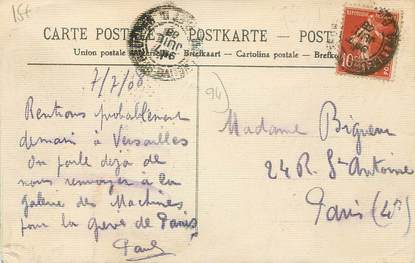 15f
CARTE POSTALE — POSTKARTE — POST
Union postale Briefkaart - Cartolina postale - Briefk
7/7/08
(94)
Rentrons probablement
demain à Versailles
On parle déjà de
nous renvoyer à la
galerie des Machines
pour la grève de Paris
Paul
Madame Bigneau
24 R. St Antoine
Paris (4e)
10